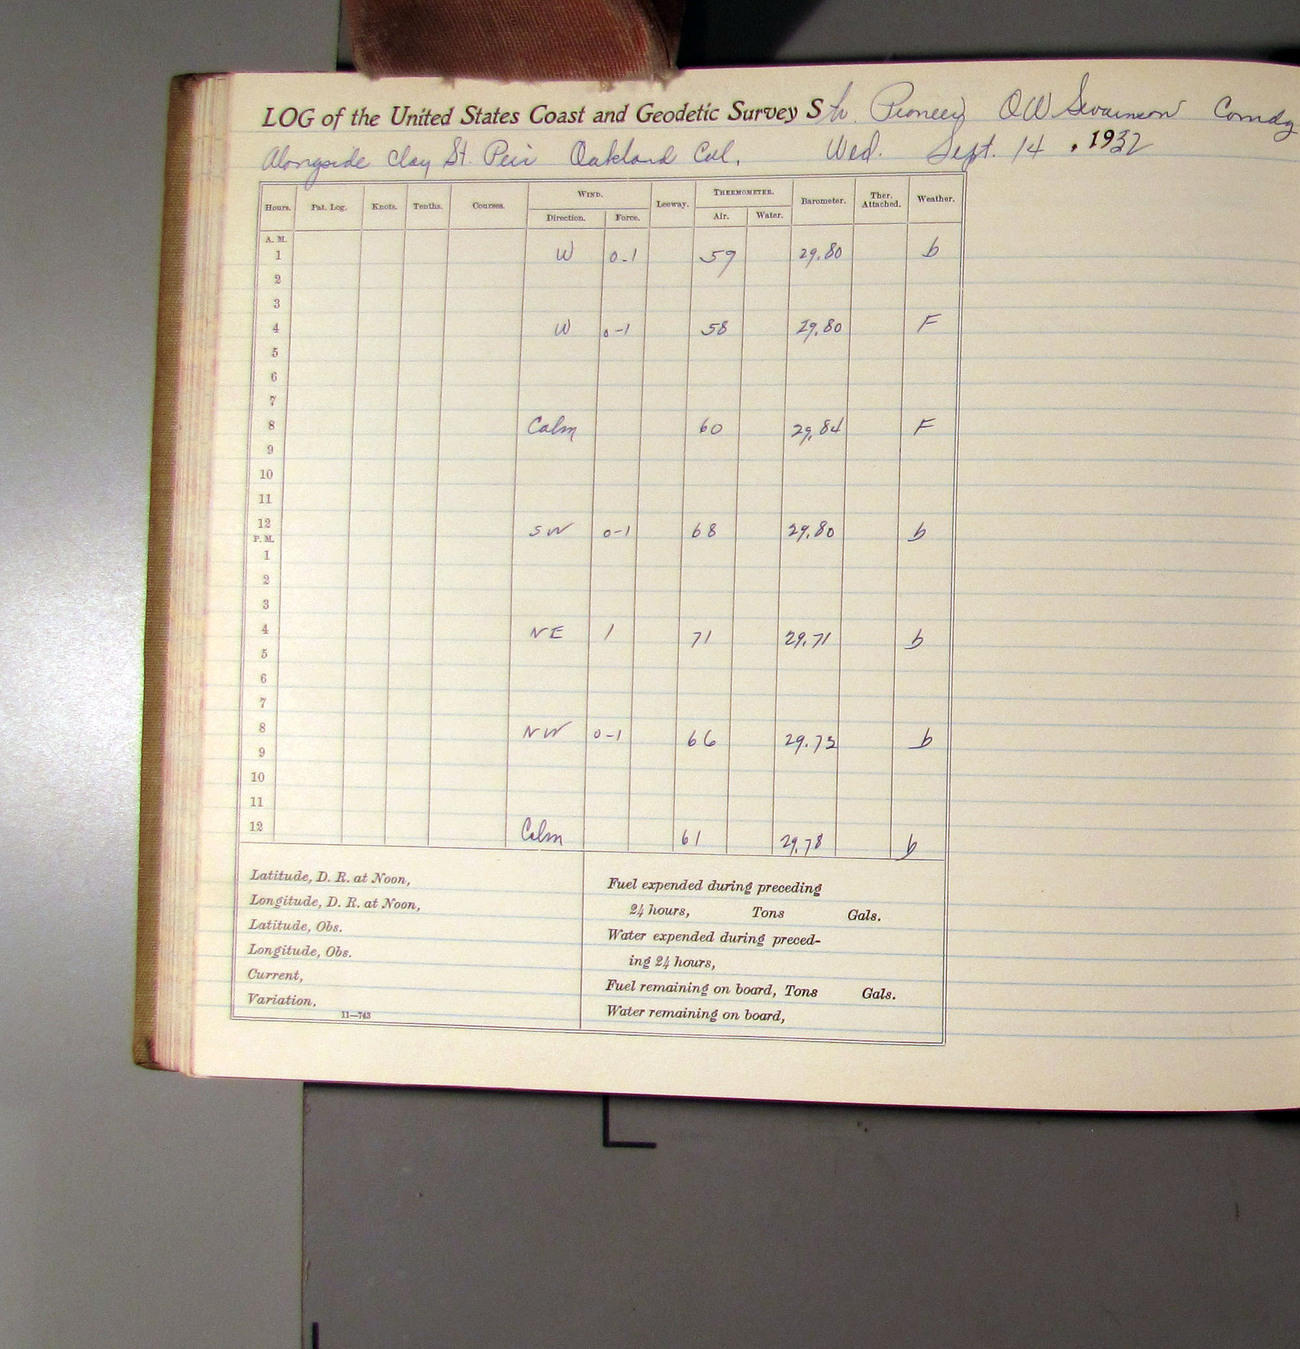 LOG of the United States Coast and Geodetic Survey Sh. Pioneer O W Swainson Comdg
Alongside Clay St. Peir Oakland Cal, Wed. Sept. 14, 1932
Hours. Pat. Log. Knots. Tenths. Courses. WIND. Leeway. THERMOMETER. Barometer. Ther. Attached. Weather.
Direction. Force. Air. Water.
A. M.
1 W 0-1 59 29.80 b
2
3
4 W 0-1 58 29.80 F
5
6
7
8 Calm 60 29.84 F
9
10
11
12 SW 0-1 68 29.80 b
P. M.
1
2
3
4 NE 1 71 29.71 b
5
6
7
8 NW 0-1 66 29.73 b
9
10
11
12 Calm 61 29.78 b
Latitude, D. R. at Noon,
Longitude, D. R. at Noon,
Latitude, Obs.
Longitude, Obs.
Current,
Variation,
11—743
Fuel expended during preceding
24 hours, Tons Gals.
Water expended during preced-
ing 24 hours,
Fuel remaining on board, Tons Gals.
Water remaining on board,